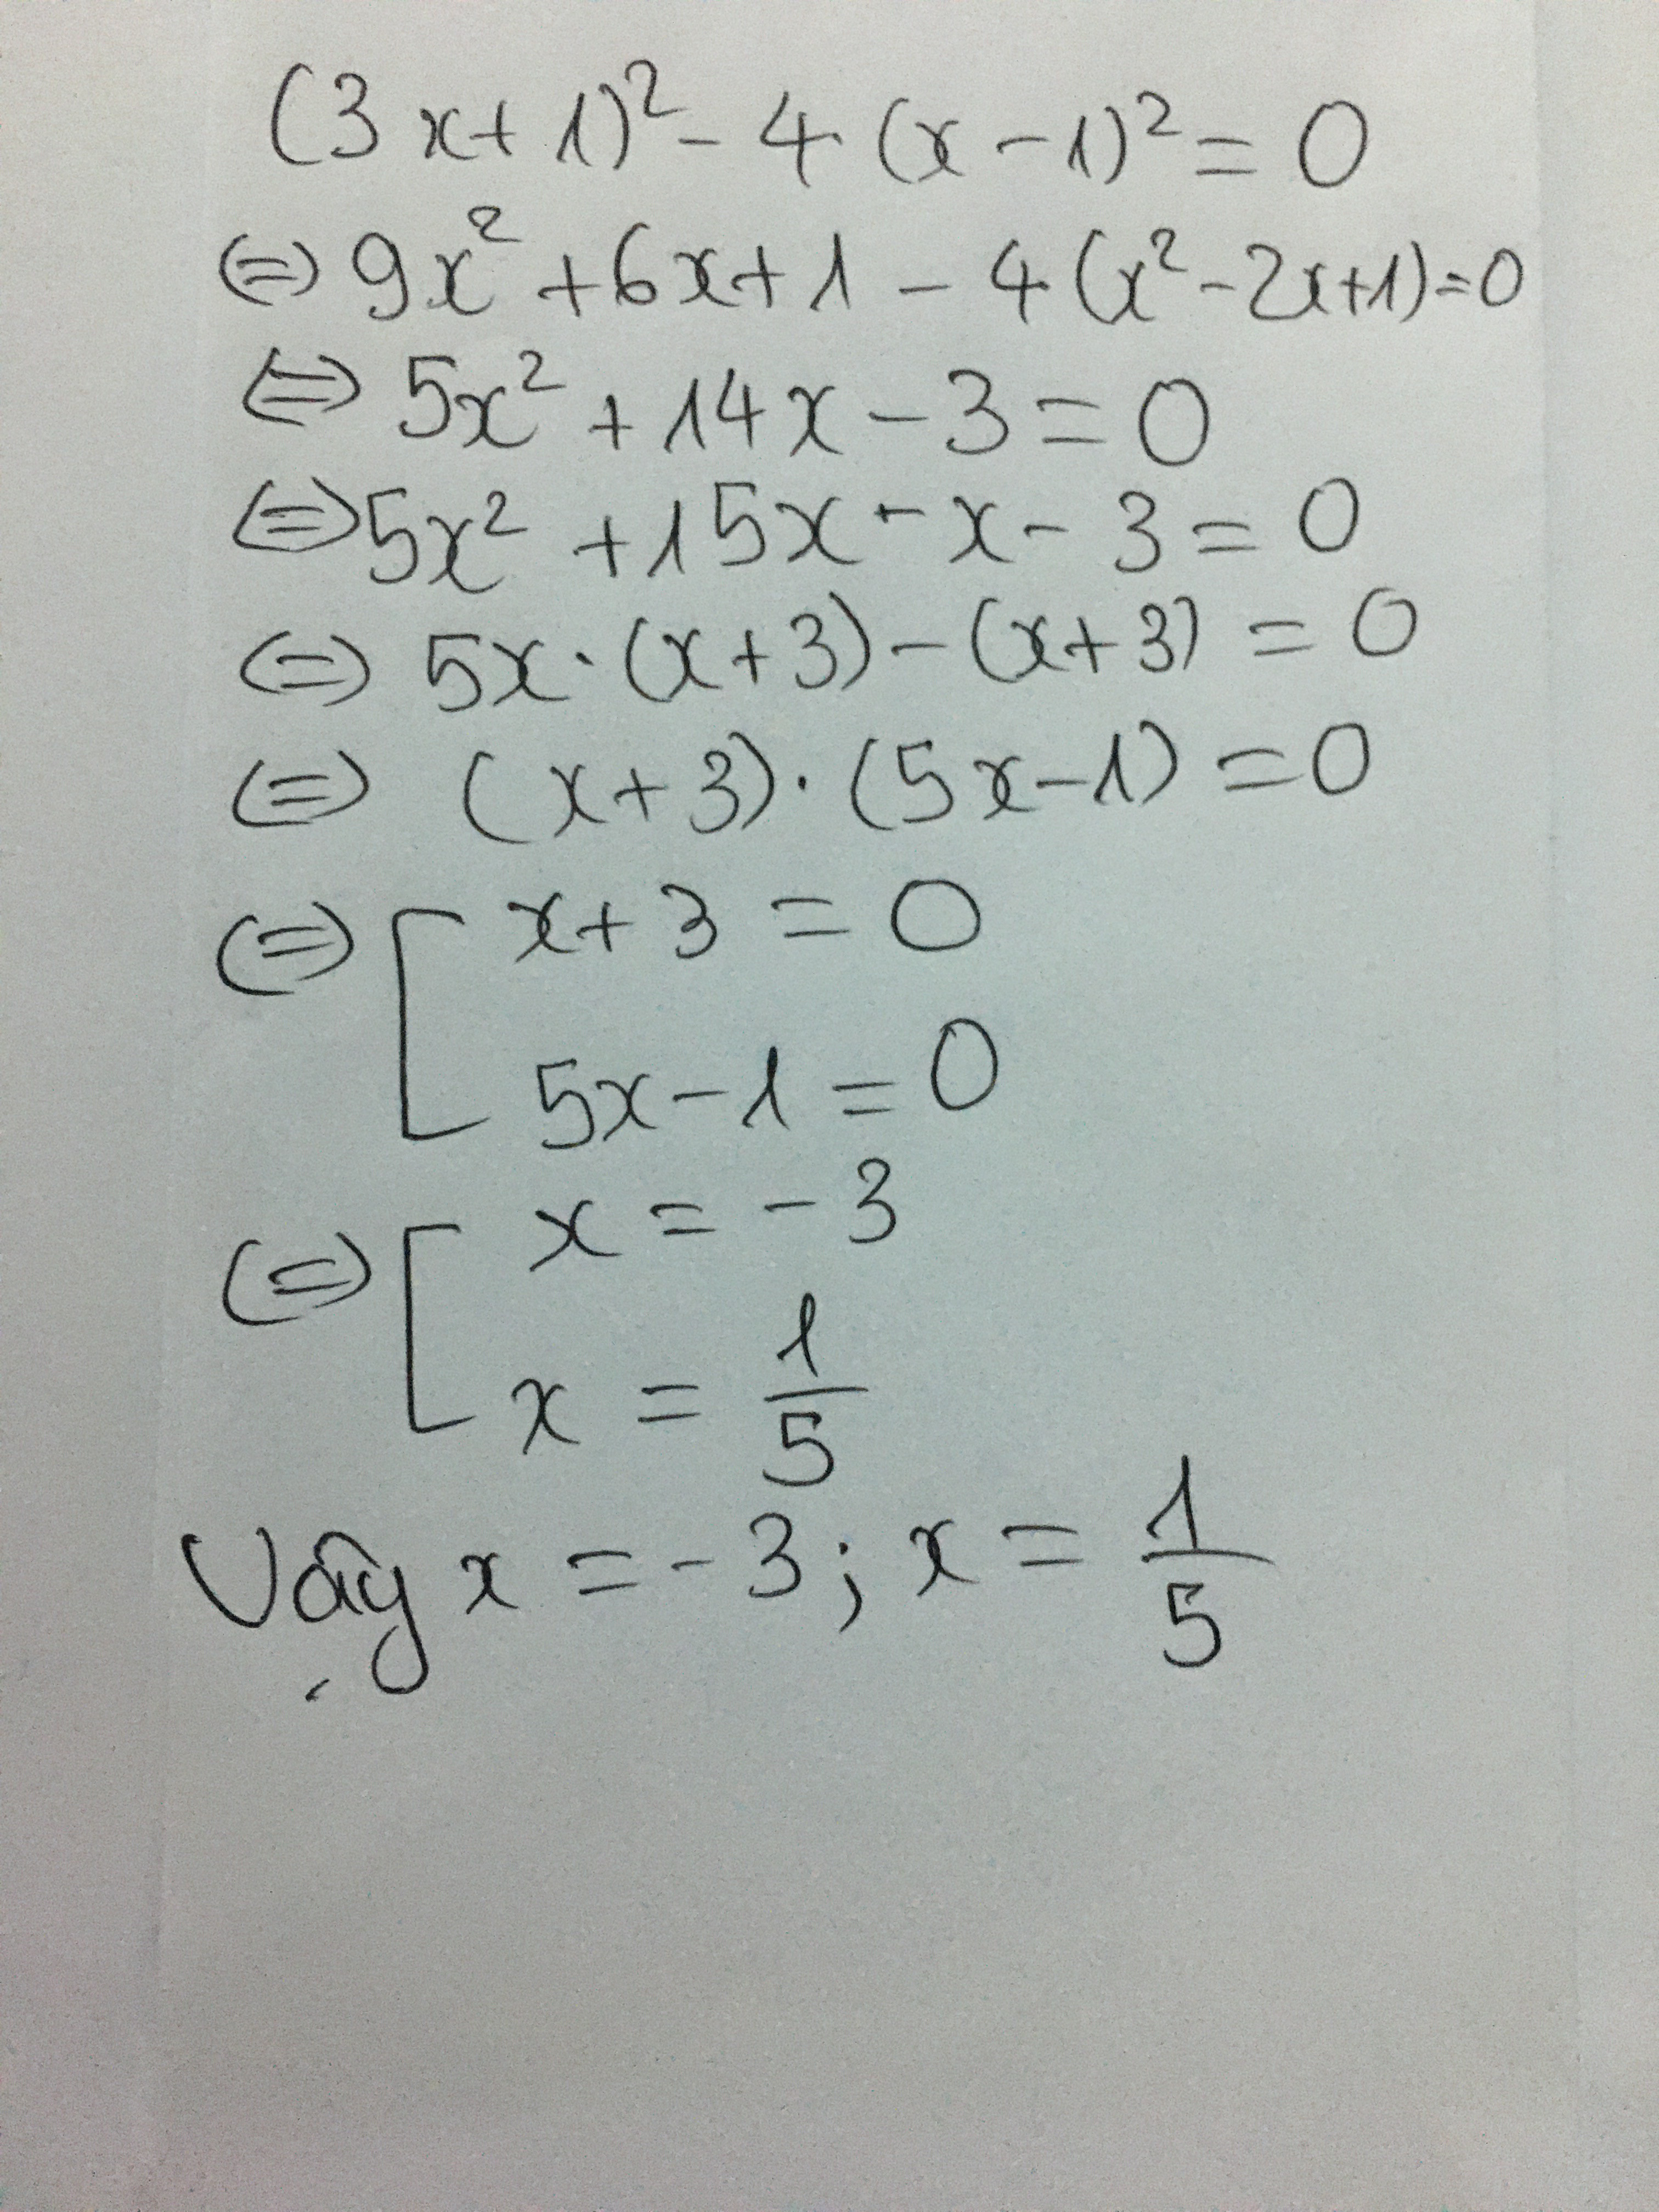 (3x+1)² - 4(x-1)² = 0
(=) 9x² + 6x + 1 - 4(x² - 2x + 1) = 0
(=) 5x² + 14x - 3 = 0
(=) 5x² + 15x - x - 3 = 0
(=) 5x·(x+3) - (x+3) = 0
(=) (x+3)·(5x-1) = 0
(=) [ x+3 = 0
5x-1 = 0
(=) [ x = -3
x = 1/5
Vậy x = -3; x = 1/5